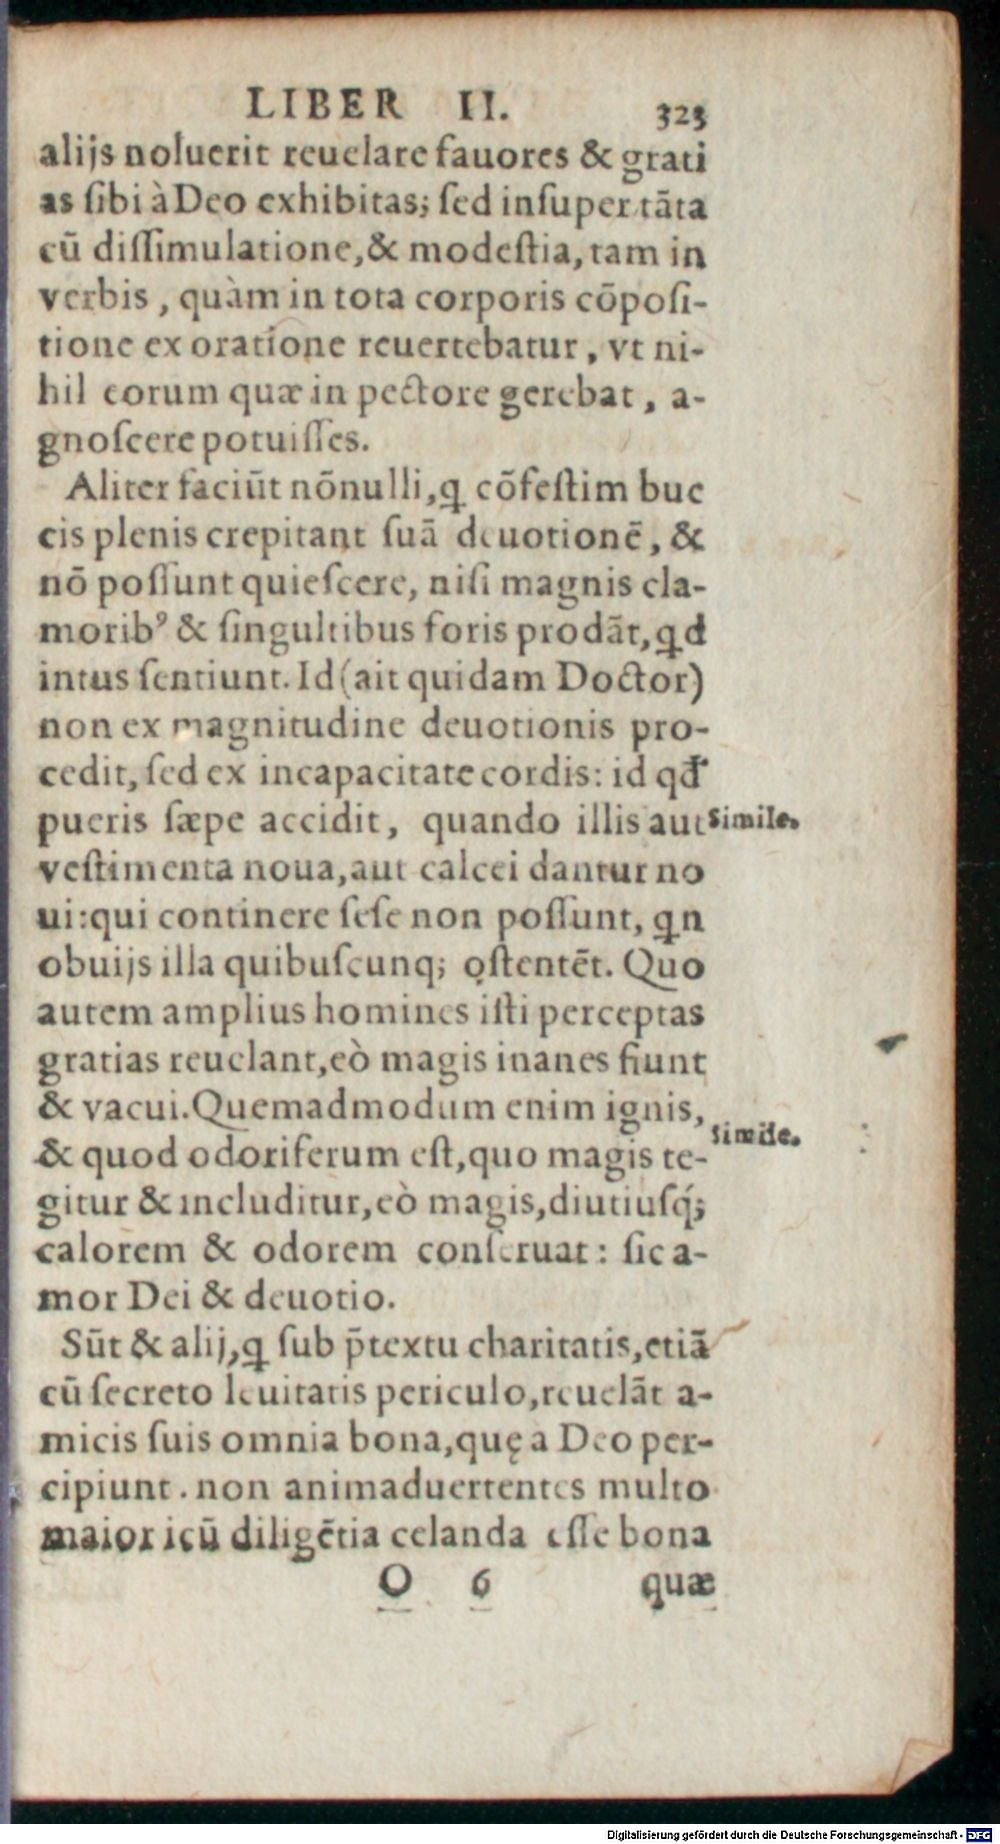 LIBER II. 323
alijs noluerit reuelare fauores & grati
as ſibi à Deo exhibitas; ſed inſuper tāta
cū diſſimulatione, & modeſtia, tam in
verbis, quàm in tota corporis cōpoſi-
tione ex oratione reuertebatur, vt ni-
hil eorum quæ in pectore gerebat, a-
gnoſcere potuiſſes.
Aliter faciūt nōnulli, ꝗ cōfeſtim buc
cis plenis crepitant ſuā deuotionē, &
nō poſſunt quieſcere, niſi magnis cla-
moribꝰ & ſingultibus foris prodāt, ꝗd
intus ſentiunt. Id (ait quidam Doctor)
non ex magnitudine deuotionis pro-
cedit, ſed ex incapacitate cordis: id qđ
pueris ſæpe accidit, quando illis aut Simile.
veſtimenta noua, aut calcei dantur no
ui: qui continere ſeſe non poſſunt, ꝗn
obuijs illa quibuſcunq; oſtentēt. Quo
autem amplius homines iſti perceptas
gratias reuelant, eò magis inanes fiunt
& vacui. Quemadmodum enim ignis,
Simile.
& quod odoriferum eſt, quo magis te-
gitur & includitur, eò magis, diutiuſq́;
calorem & odorem conſeruat: ſic a-
mor Dei & deuotio.
Sūt & alij, ꝗ ſub p̄textu charitatis, etiā
cū ſecreto leuitatis periculo, reuelāt a-
micis ſuis omnia bona, quę a Deo per-
cipiunt. non animaduertentes multo
maiori cū diligētia celanda eſſe bona
O 6 quæ
Digitalisierung gefördert durch die Deutsche Forschungsgemeinschaft - DFG